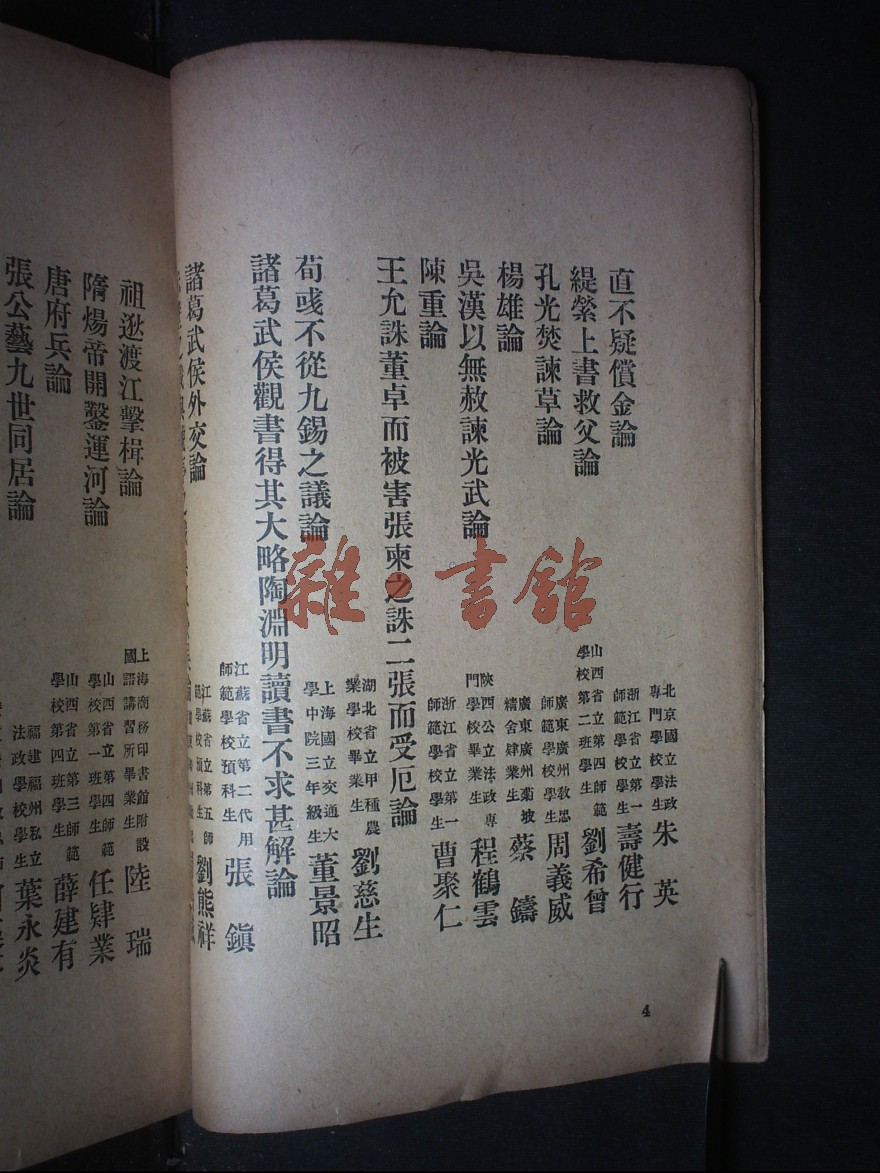 直不疑償金論
北京國立法政
專門學校學生
朱英
緹縈上書救父論
浙江省立第一
師範學校學生
壽健行
孔光焚諫草論
山西省立第四師範
學校第二班學生
劉希曾
楊雄論
廣東廣州敎思
師範學校學生
周義威
吳漢以無赦諫光武論
廣東廣州菊坡
精舍肄業生
蔡鑄
陳重論
陝西公立法政專
門學校學生
程鶴雲
王允誅董卓而被害張柬之誅二張而受厄論
浙江省立第一
師範學校學生
曹聚仁
荀彧不從九錫之議論
湖北省立甲種農
業學校畢業生
劉慈生
諸葛武侯觀書得其大略陶淵明讀書不求甚解論
上海國立交通大
學中院三年級生
董景昭
諸葛武侯外交論
江蘇省立第二代用
師範學校預科生
張鎭
江蘇省立第五師
範學校預科生
劉熊祥
祖逖渡江擊楫論
上海商務印書館附設
國語講習所畢業生
陸瑞
隋煬帝開鑿運河論
山西省立第四師範
學校第一班學生
任肄業
唐府兵論
山西省立第三師範
學校第四班學生
薛建有
張公藝九世同居論
福建福州私立
法政學校學生
葉永炎
4
雜·書館